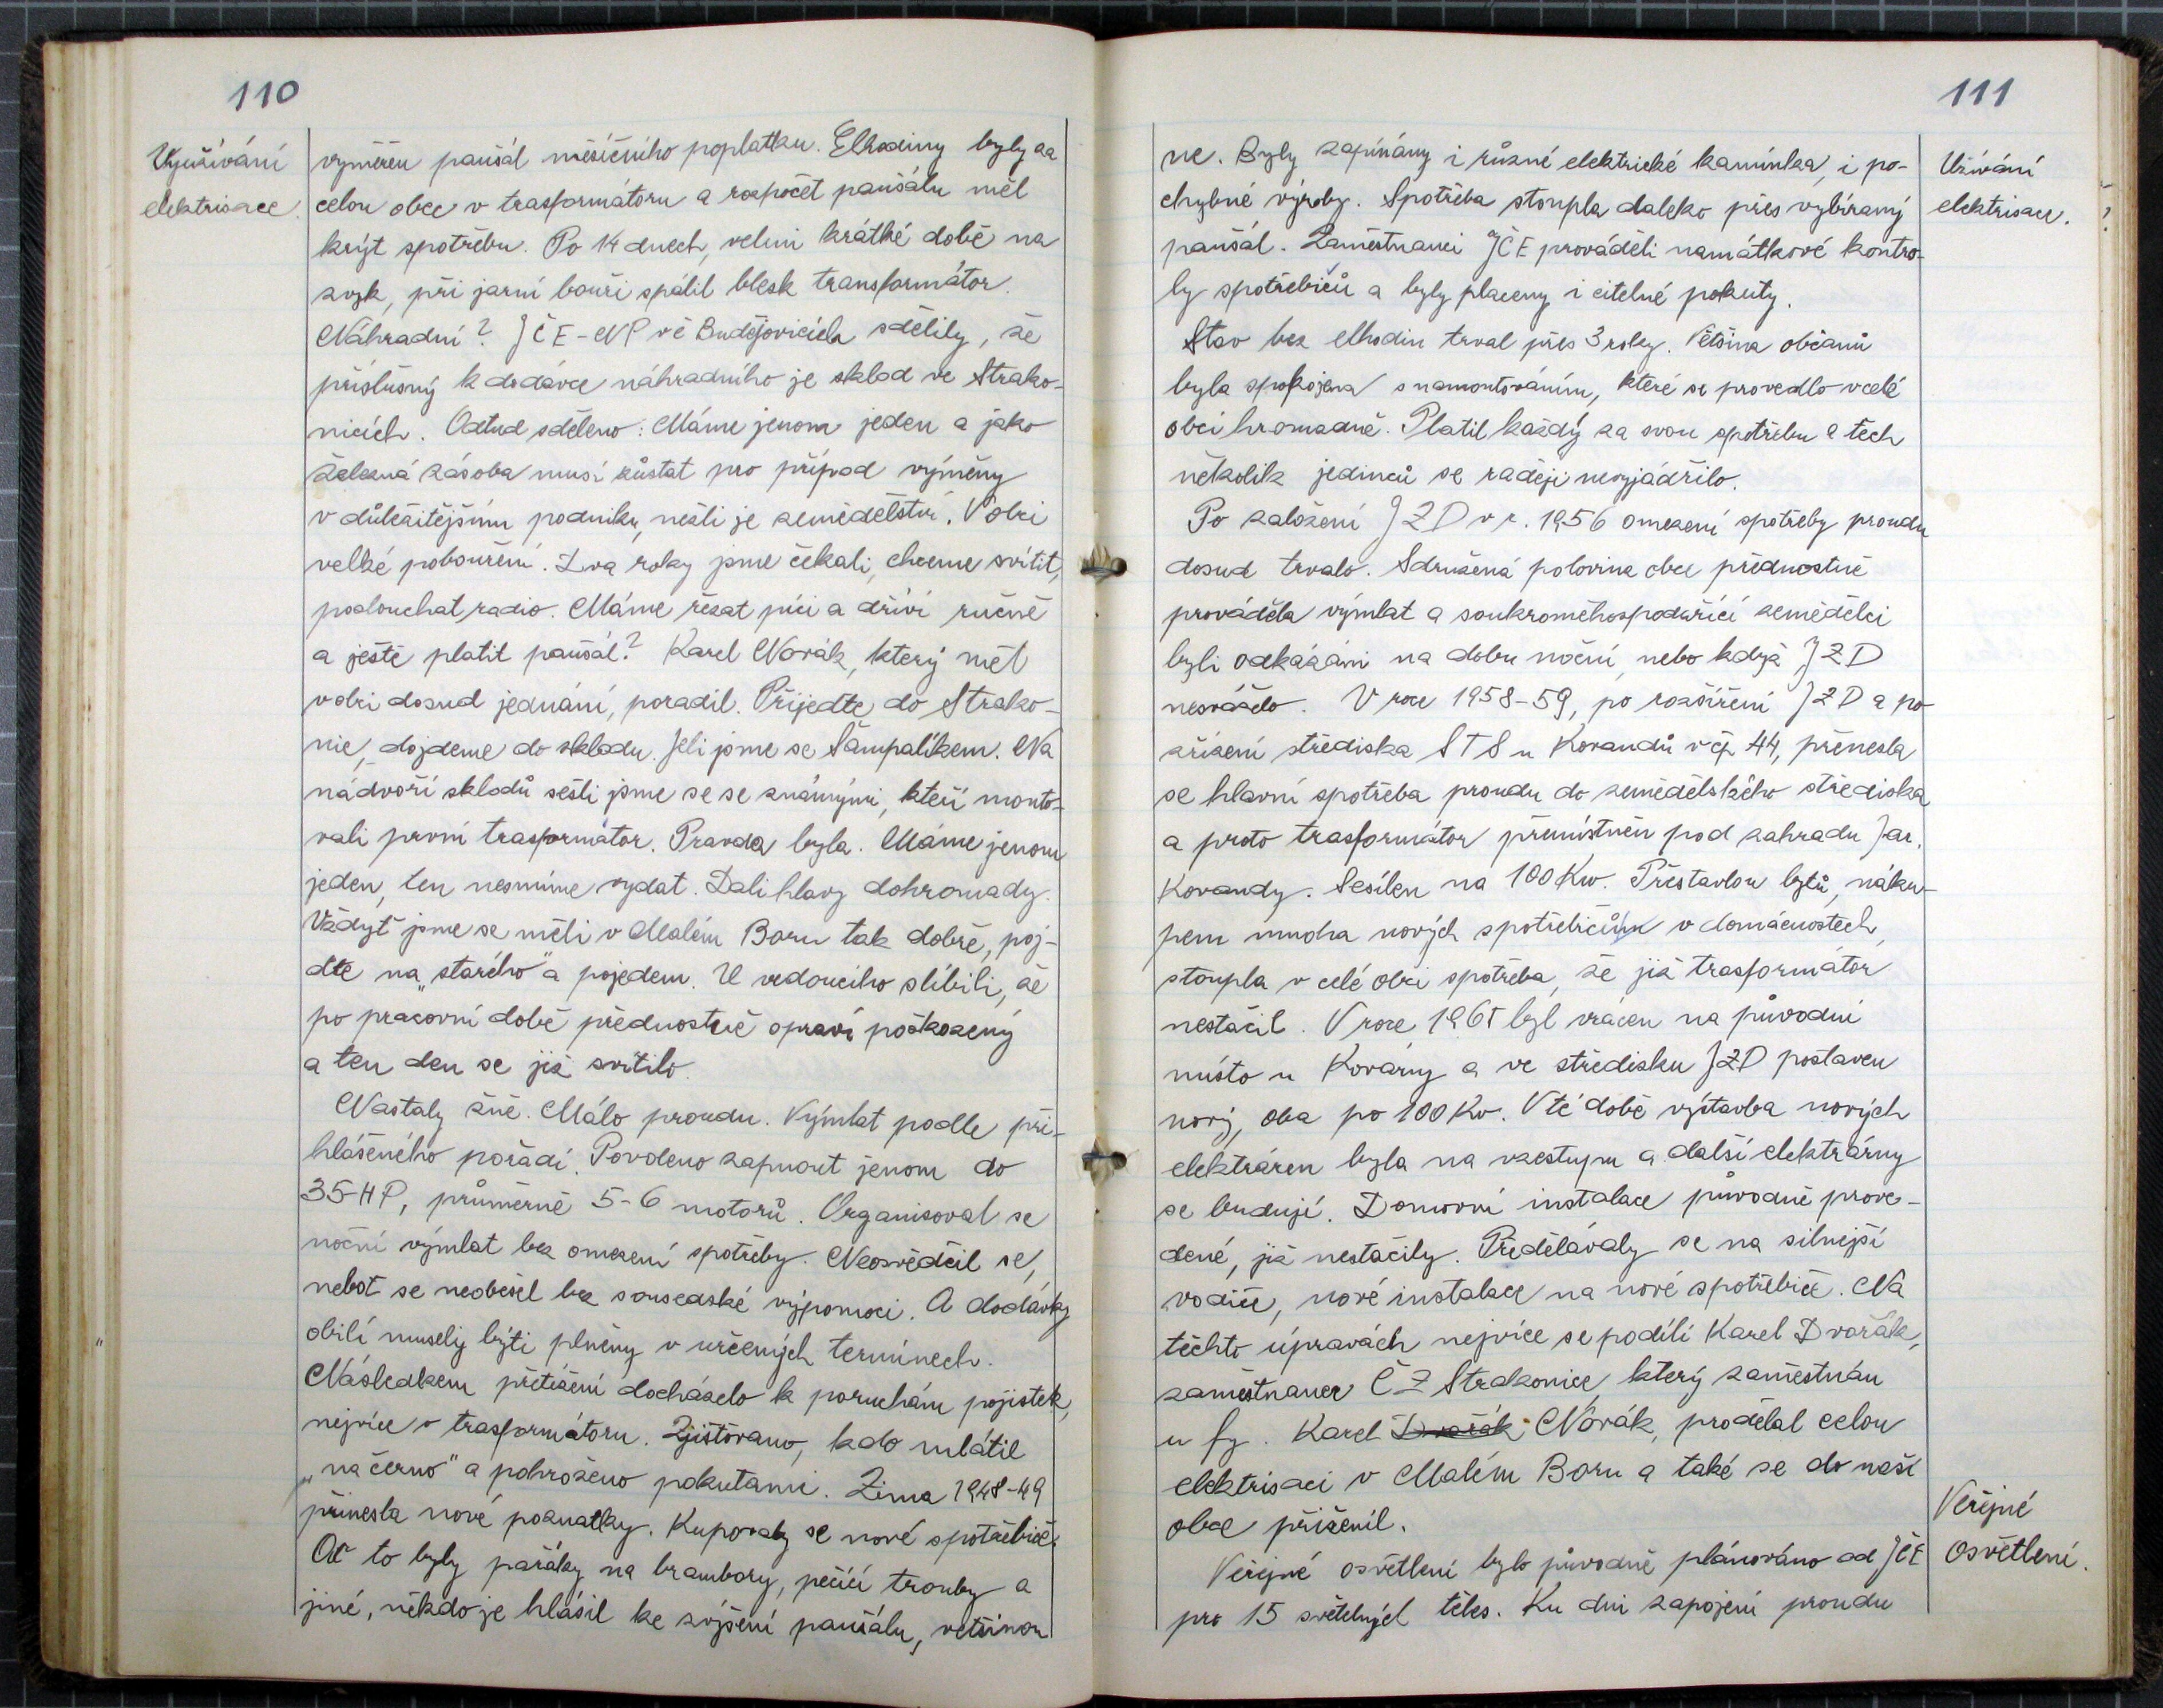 110
Využívání
elektrisace.
vyměřen paušál měsíčního poplatku. Elhodiny byly za
celou obec v trasformátoru a rozpočet paušálu měl
krýt spotřebu. Po 14 dnech, velmi krátké době na
zvyk, při jarní bouři spálil blesk transformátor.
Náhradní? JČE-NP v Č Budějovicích sdělily, že
příslušný k dodávce náhradního je sklad ve Strako-
nicích. Odtud sděleno: Máme jenom jeden a jako
železná zásoba musí zůstat pro případ výměny
v důležitějším podniku, nežli je zemědělství. V obci
velké pobouření. Dva roky jsme čekali, chceme svítit,
poslouchat radio. Máme řezat píci a dříví ručně
a ještě platit paušál? Karel Novák, který měl
v obci dosud jednání, poradil. Přijeďte do Strako-
nic, dojdeme do skladu. Jeli jsme se Šampalíkem. Na
nádvoří skladů sešli jsme se se známými, kteří monto-
vali první trasformátor. Pravda byla. Máme jenom
jeden, ten nesmíme vydat. Dali hlavy dohromady.
Vždyť jsme se měli v Malém Boru tak dobře, poj-
dte na „starého" a pojedem. U vedoucího slíbili, že
po pracovní době přednostně opraví poškozený
a ten den se již svítilo.
Nastaly žně. Málo proudu. Výmlat podle při-
hlášeného pořadí. Povoleno zapnout jenom do
35 HP, průměrně 5-6 motorů. Organisoval se
noční výmlat bez omezení spotřeby. Neosvědčil se,
neboť se neobešel bez sousedské výpomoci. A dodávky
obilí musely býti plněny v určených termínech.
Následkem přetížení docházelo k poruchám pojistek,
nejvíce v trasformátoru. Zjišťováno, kdo mlátil
„na černo" a pohroženo pokutami. Zima 1948-49
přinesla nové poznatky. Kupovaly se nové spotřebiče.
Ať to byly pařáky na brambory, pečící trouby a
jiné, někdo je hlásil ke zvýšení paušálu, většinou
111
Užívání
elektrisace.
ne. Byly zapínány i různé elektrické kamínka, i po-
chybné výroby. Spotřeba stoupla daleko přes vybíraný
paušál. Zaměstnanci JČE prováděli namátkové kontro-
ly spotřebičů a byly placeny i citelné pokuty.
Stav bez elhodin trval přes 3 roky. Většina občanů
byla spokojena s namontováním, které se provedlo v celé
obci hromadně. Platil každý za svou spotřebu a těch
několik jedinců se raději nevyjádřilo.
Po založení JZD v r. 1956 omezení spotřeby proudu
dosud trvalo. Sdružená polovina obce přednostně
prováděla výmlat a soukroměhospodařící zemědělci
byli odkázáni na dobu noční, nebo když JZD
nesváželo. V roce 1958-59, po rozšíření JZD a po
zřízení střediska STS u Kovandů v čp 44, přenesla
se hlavní spotřeba proudu do zemědělského střediska
a proto trasformátor přemístněn pod zahradu Jar.
Kovandy. Sesílen na 100 Kw. Přestavbou bytů, náku-
pem mnoha nových spotřebičům v domácnostech,
stoupla v celé obci spotřeba, že již trasformátor
nestačil. V roce 1965 byl vrácen na původní
místo u Kovárny a ve středisku JZD postaven
nový, oba po 100 Kv. V té době výstavba nových
elektráren byla na vzestupu a další elektrárny
se budují. Domovní instalace původně prove-
dené, již nestačily. Předělávaly se na silnější
vodiče, nové instalace na nové spotřebiče. Na
těchto úpravách nejvíce se podílí Karel Dvořák,
zaměstnanec ČZ Strakonice, který zaměstnán
u fy. Karel Dvořák Novák, prodělal celou
elektrisaci v Malém Boru a také se do naší
obce přiženil.
Veřejné
osvětlení.
Veřejné osvětlení bylo původně plánováno od JČE
pro 15 světelných těles. Ku dni zapojení proudu